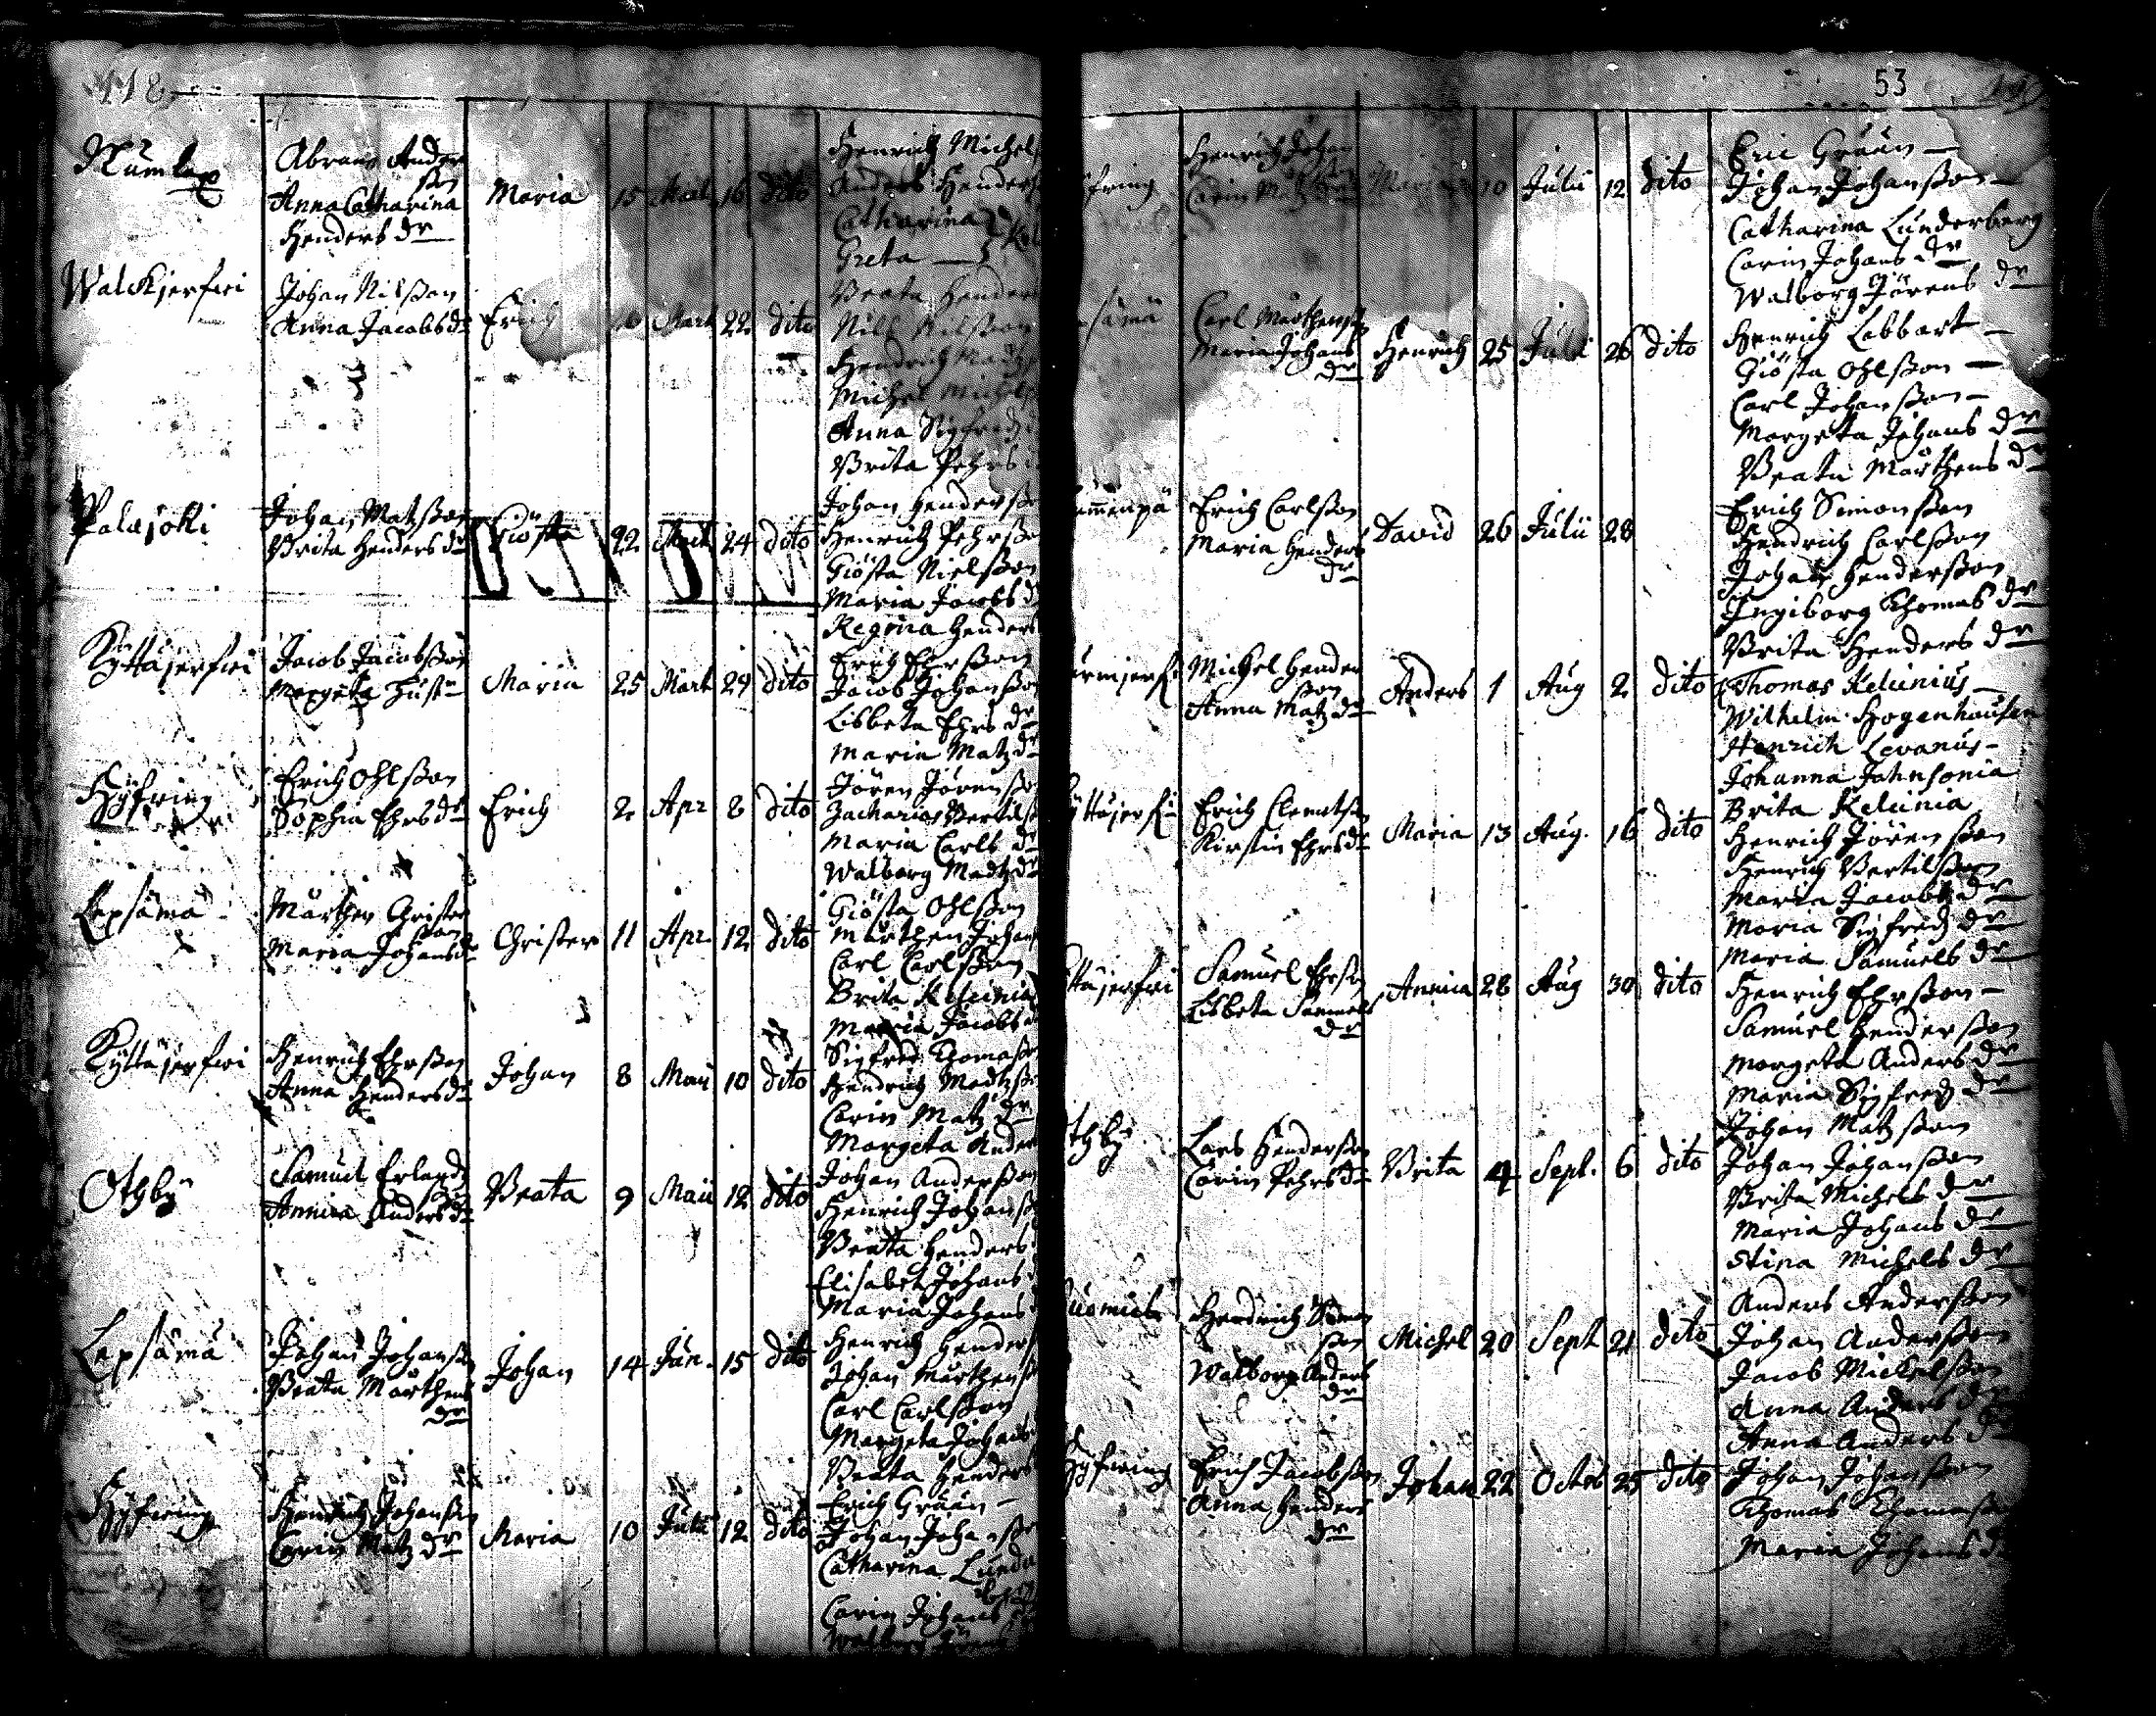 118
Numlax
Abram Anders
son
Anna Catharina
Henders dr
Maria 15 Mart 16 dito
Henrich Michels
Anders Henders
Catharina
Greta
Beata Henders
Walckjerfwi
Johan Nilsson
Anna Jacobs dr
Erich 16 Mart 22 dito
Nills Nilsson
Hendrich Matz
Michel Michels
Anna Sigfredz
Brita Pehrs
Palajoki
Johan Matzson
Brita Henders dr
Giösta 22 Mart 24 dito
Johan Henderss
Henrich Pehrsso
Giösta Nielsson
Maria Jacobs d
Regina Henders
Kÿttäjerfwi
Jacob Jacobsson
Margeta
Maria 25 Mart 29 dito
Erich Ehrsson
Jacob Johansso
Lisbeta Ehrs dr
Maria Matz dr
Hÿfwing
Erich Ohlsson
Sophia Ehrs dr
Erich 2 Apr 8 dito
Jören Jörenss
Zacharias Bertils
Maria Carls dr
Walborg Madtz dr
Lepsämä
Mårthen Christer
son
Maria Johans dr
Christer 11 Apr. 12 dito
Giösta Ohlsson
Mårthen Johans
Carl Carlsson
Brita Kelunia
Maria Jacobs
Kÿttäjerfwi
Henrich Ehrsson
Anna Henders dr
Johan 8 Maii 10 dito
Sigfred Thomass
Hendrich Madtzs
Carin Matz dr
Margeta Anders
Othbÿ
Samuel Erlandz
son
Annica Anders dr
Beata 9 Maii 12 dito
Johan Andersson
Henrich Johanss
Beata Henders
Elisabet Johans
Maria Johans
Lepsämä
Johan Johansson
Beata Mårthens
dr
Johan 14 Jun. 15 dito
Henrich Henders
Johan Mårthens
Carl Carlsson
Margeta Johans
Beata Henders
Hÿfwing
Henrich Johansson
Carin Matz dr
Maria 10 Julii 12 dito
Erich Gråån
Johan Johanss
Catharina Lunder
berg
Carin Johans
53
fwing
Henrich Johan
son
Carin Matz dr
Maria 10 Julii 12 dito
Eric Gråån
Johan Johansson
Catharina Lunderberg
Carin Johans dr
Walborg Jörens dr
sämä
Carl Mårthensson
Maria Johans
dr
Henrich 25 Julii 26 dito
Henrich Lebbart
Giösta Ohlsson
Carl Johansson
Margeta Johans dr
Beata Mårthens dr
Erich Carlsson
Maria Henders
dr
David 26 Julii 28
Erich Simonsson
Hendrich Carlsson
Johan Hendersson
Ingiborg Thomas dr
Brita Henders dr
Michel Hender
son
Anna Matz dr
Anders 1 Aug 2 dito
Thomas Kelunius
Wilhelm Hogenhausen
Henrich Levanus
Johanna Jahnsonia
Brita Kelunia
ÿttäjerfwi
Erich Clemetson
Kirstin Ehrs dr
Maria 13 Aug. 16 dito
Henrich Jörensson
Henrich Bertilsson
Maria Jacobs dr
Maria Sigfredz dr
Maria Samuels dr
ttäjerfwi
Samuel Ehrson
Lisbeta Samuels
dr
Annica 28 Aug 30 dito
Henrich Ehrsson
Samuel Hendersson
Margeta Anders dr
Maria Sigfredz dr
thbÿ
Lars Hendersson
Carin Pehrs dr
Brita 4 Sept. 6 dito
Johan Matzson
Johan Johansson
Brita Michels dr
Maria Johans dr
Stina Michels dr
Hendrich Simon
son
Walborg Anders
dr
Michel 20 Sept 21 dito
Anders Andersson
Johan Andersson
Jacob Mickelsson
Anna Anders dr
Anna Anders dr
Hÿfwing
Erich Jacobsson
Anna Henders
dr
Johan 22 Octob 25 dito
Johan Johansson
Thomas Thomasson
Maria Johans d